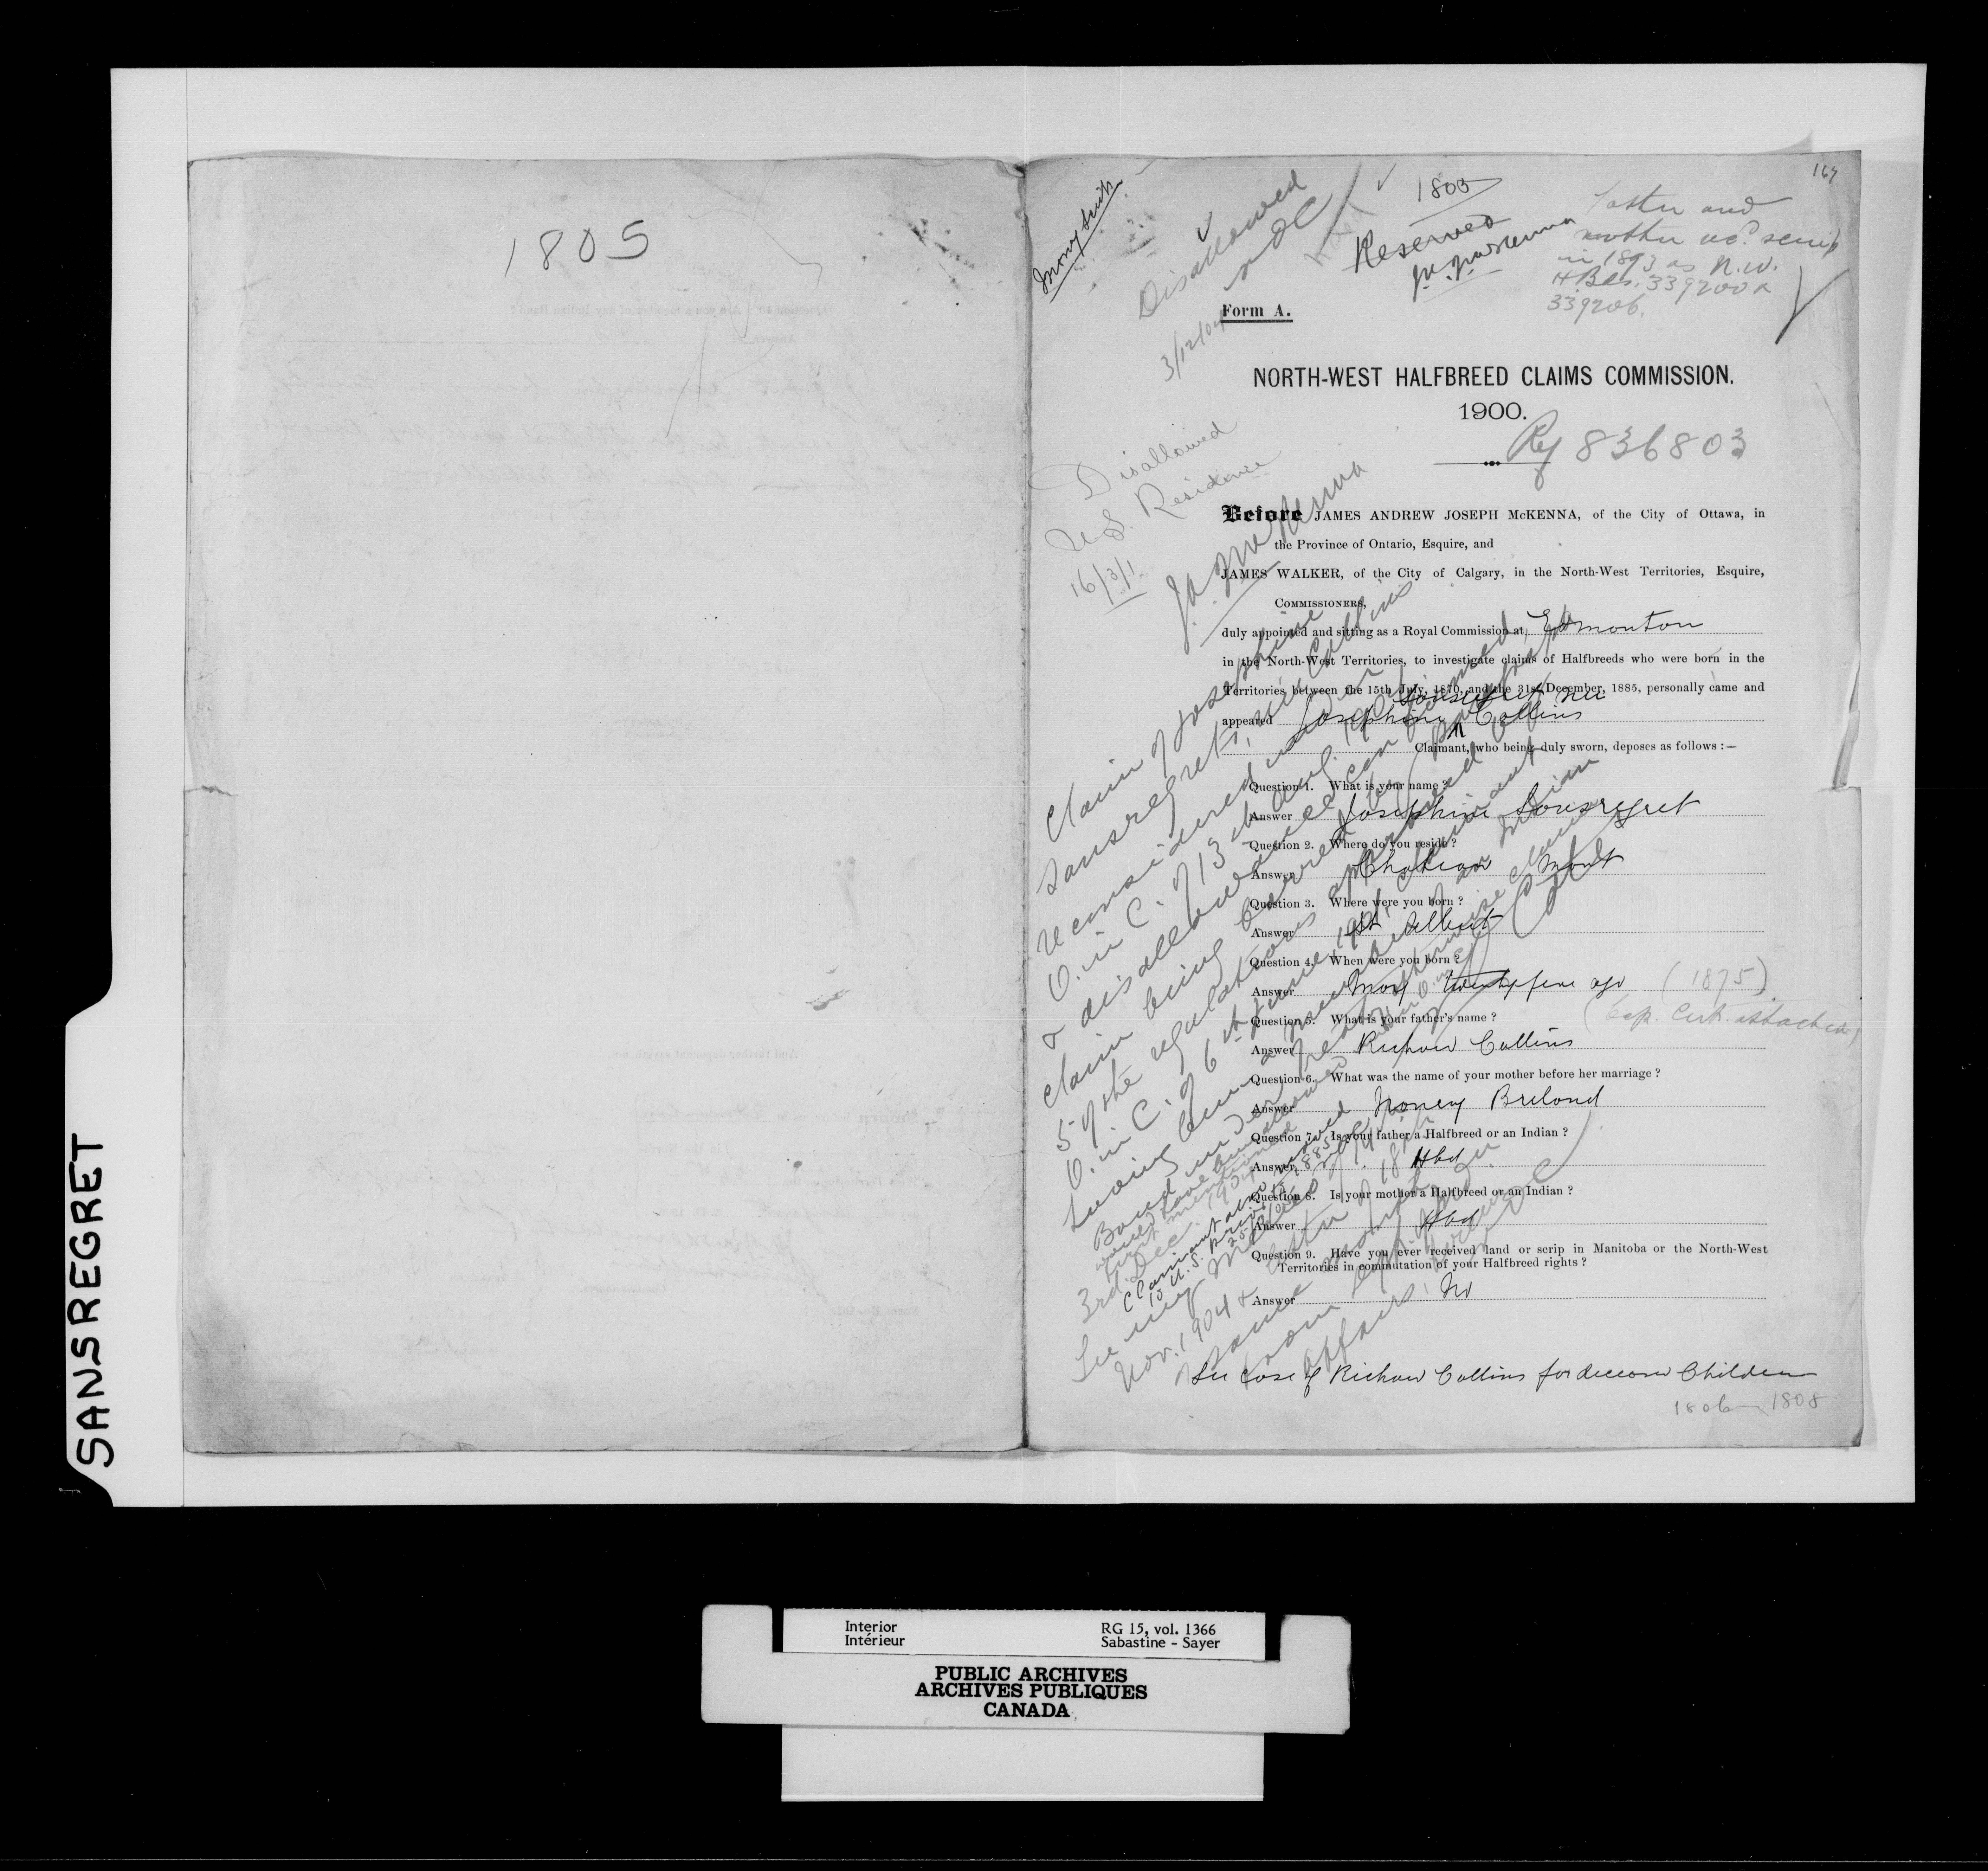 SANSREGRET
1805
164
1805
Disallowed
NOC
3/12/04
Reserved
J.A.J. McKenna
Father and
mother rec? scrip
in 1893 as N.W.
H.Bds. 339200 &
339206.
Form A.
NORTH-WEST HALFBREED CLAIMS COMMISSION.
1900.
Ref 836803
Disallowed
U.S. Residence
16/3/1
J.A. McKenna
Before JAMES ANDREW JOSEPH McKENNA, of the City of Ottawa, in
the Province of Ontario, Esquire, and
JAMES WALKER, of the City of Calgary, in the North-West Territories, Esquire,
COMMISSIONERS,
duly appointed and sitting as a Royal Commission at, Edmonton
in the North-West Territories, to investigate claims of Halfbreeds who were born in the
Territories between the 15th July, 1870, and the 31st December, 1885, personally came and
Sansregret nee
appeared Josephine Collins
Claimant, who being duly sworn, deposes as follows :—
Question 1. What is your name ?
Answer Josephine Sansregret
Question 2. Where do you reside ?
Answer Mont
Question 3. Where were you born ?
Answer St Albert
Question 4. When were you born ?
Answer May twenty five ago (1875)
(Bap. Cert. attached)
Question 5. What is your father's name ?
Answer Richard Collins
Question 6. What was the name of your mother before her marriage ?
Answer Nancy Breland
Question 7. Is your father a Halfbreed or an Indian ?
Answer Hbd
Question 8. Is your mother a Halfbreed or an Indian ?
Answer Hbd
Question 9. Have you ever received land or scrip in Manitoba or the North-West
Territories in commutation of your Halfbreed rights ?
Answer No
See Case of Richard Collins for deceased Children
1806 – 1808
Claim of Josephine
Sansregret, née Collins
reconsidered under
O. in C. of 13th Aug. 1904
& disallowance confirmed,
claim being barred by paragraph
5 of the regulations approved by
O. in C. of 6th June, 1901, claimant
having been a member of an Indian
Band under Treaty
3rd Dec. 1904
Interior
Intérieur
RG 15, vol. 1366
Sabastine - Sayer
PUBLIC ARCHIVES
ARCHIVES PUBLIQUES
CANADA